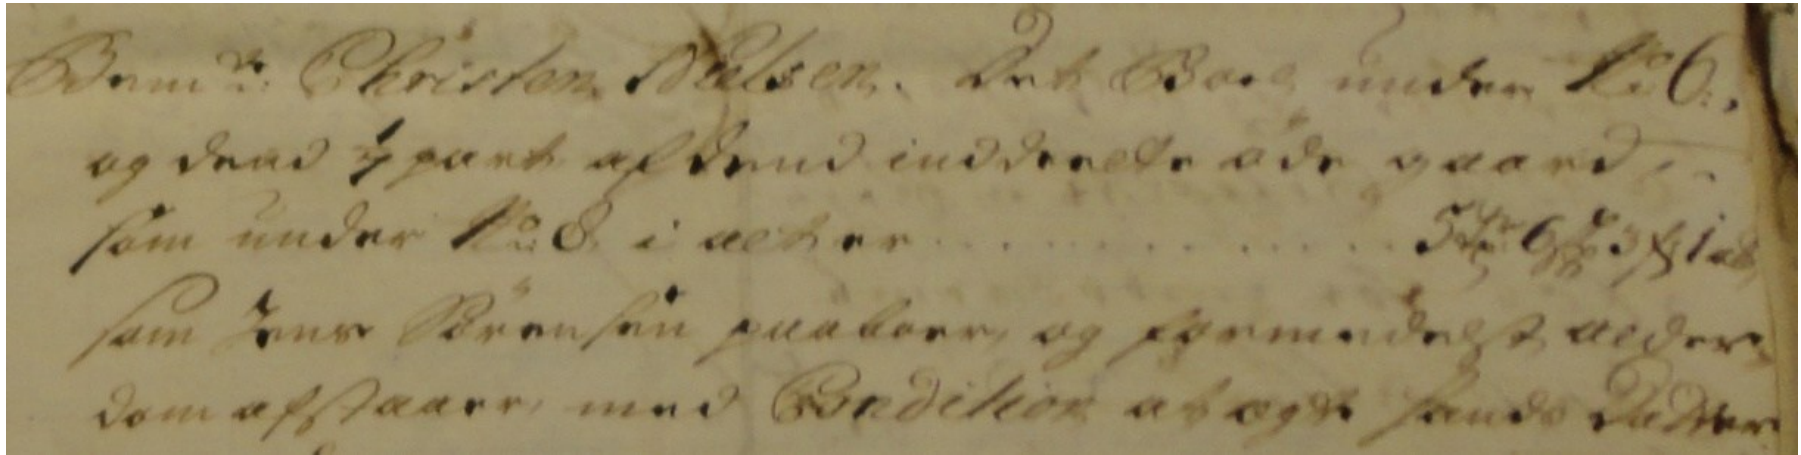 Bem:te Christen Nielsen. Det Boel under No 6.,
og dend ¼ part af dend inddeelte öde gaard,
som under No 8. i alt er . . . . . . . . . . 5 Tr 6 Skp 3 f 1 alb
som Jens Sörensen paaboer, og formedelst alder-
dom afstaaer, med Condition at ægte hands Datter